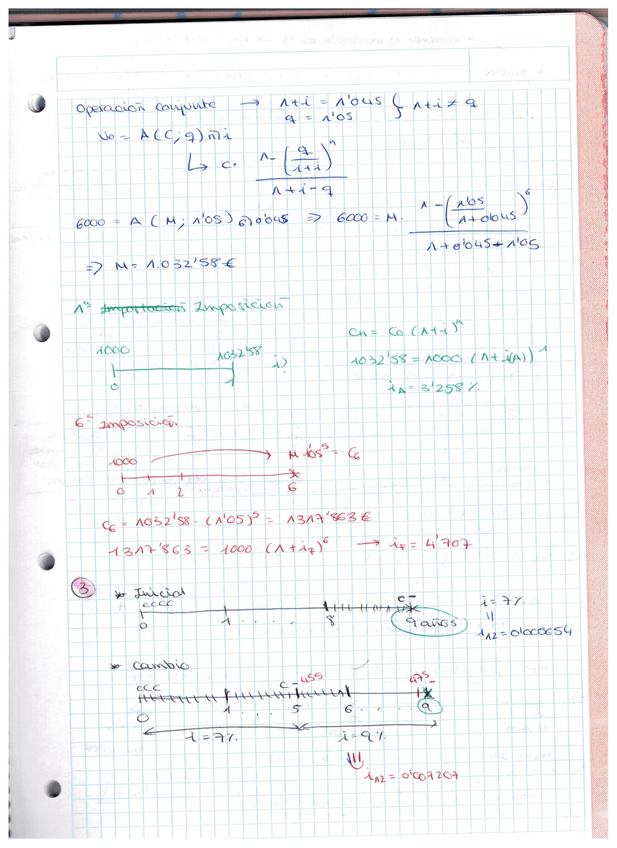 Operación conjunta → 1+i = 1'045 } 1+i ≠ q
q = 1'05
Vo = A(C; q) n¬i
↳ C. (1 - (q/(1+i))^n) / (1+i-q)
6000 = A (M; 1'05) 6¬0'045 ⇒ 6000 = M. (1 - (1'05/(1+0'045))^6) / (1+0'045-1'05)
⇒ M = 1.032'58 €
1ª Importación Imposición
Cn = Co (1+i)^n
1000 1032'58 i)
1032'58 = 1000 (1+i(A))^1
0 1
iA = 3'258 %
6ª Imposición
1000 M·1'05^5 = C6
0 1 2 6
C6 = 1032'58 · (1'05)^5 = 1317'863 €
1317'863 = 1000 (1+i7)^6 → i7 = 4'707
3 * Inicial
cccc c
0 1 . . . . 8 9 años
i = 7%
||
i12 = 0'005654
* Cambio
ccc c 455 475
0 1 . . . 5 6 . . . . 9
i = 7% i = 9%
i12 = 0'007207